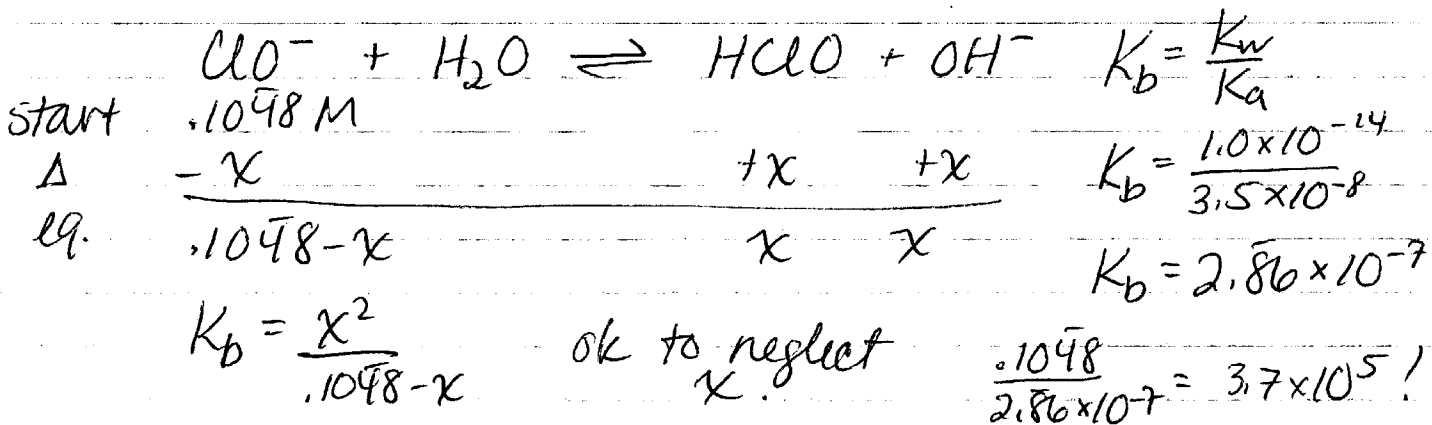 ClO⁻ + H₂O ⇌ HClO + OH⁻ K_b = K_w / K_a
start .104̄8 M
Δ - x +x +x K_b = 1.0 x 10⁻¹⁴ / 3.5 x 10⁻⁸
eq. .104̄8 - x x x K_b = 2.8̄6 x 10⁻⁷
K_b = x² / .104̄8 - x ok to neglect x. .104̄8 / 2.8̄6 x 10⁻⁷ = 3.7 x 10⁵ !